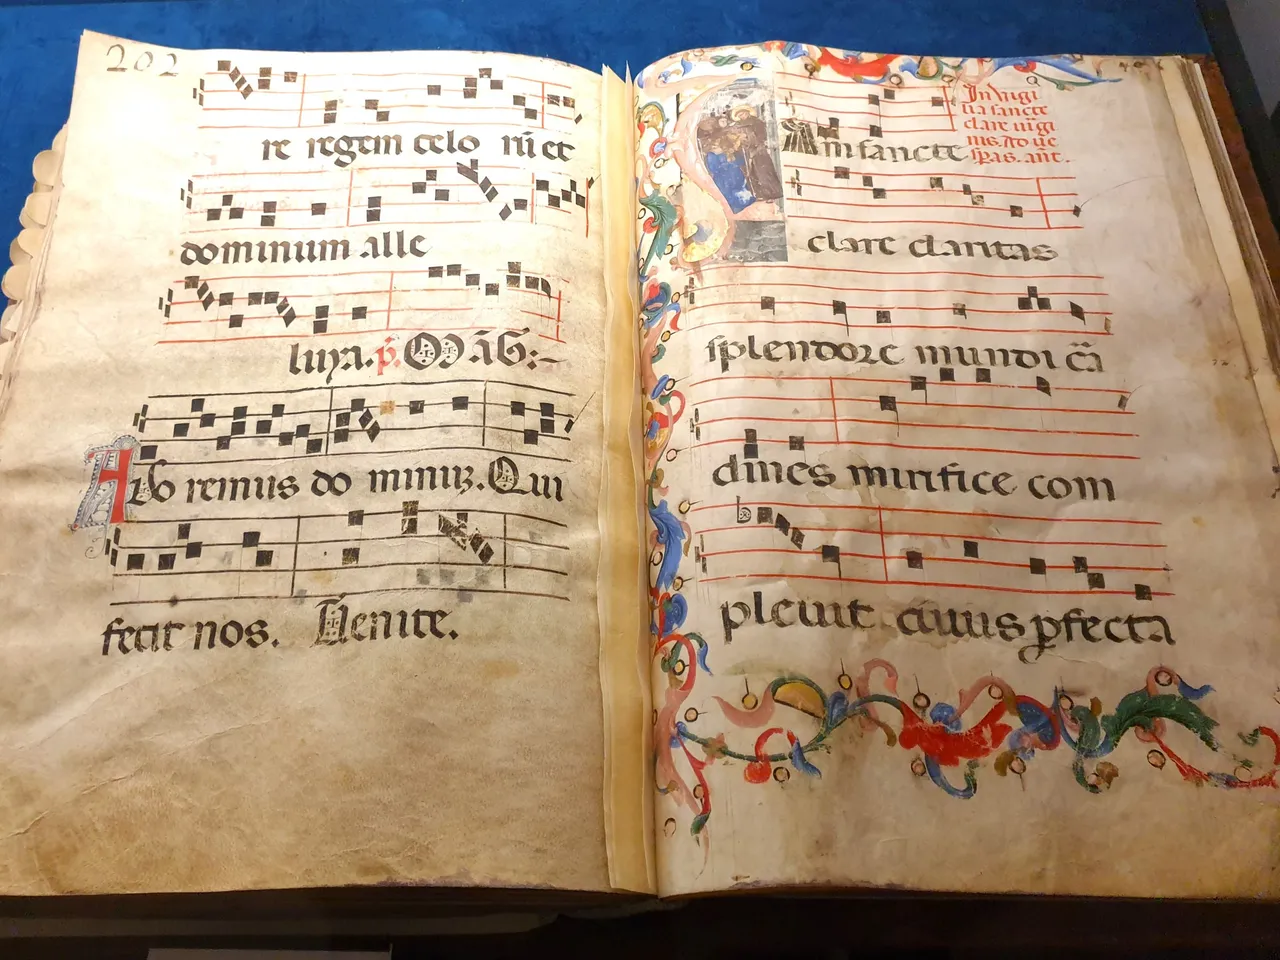 202
re regem celo rū et
dominum alle
luya. p̄. OmāG:~
Ado remus do minuz. Qui
fecit nos. Uenite.
In uigi
lia sancte
clare uirgi
nis. Ad ue
spas. ant.
Am sancte
clare claritas
splendore mundi cā
dines mirifice com
pleuit cuius pfecta